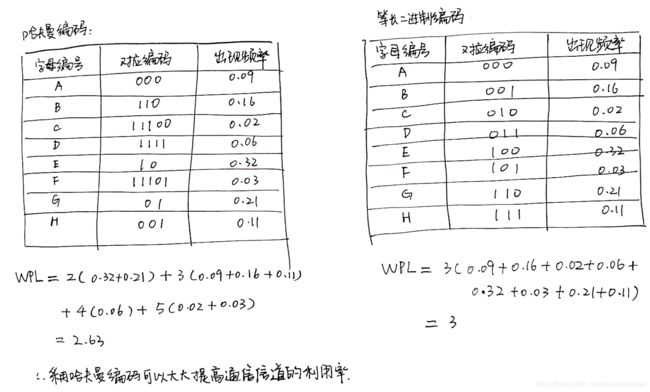 哈夫曼编码:
字母编号 对应编码 出现频率
A 000 0.09
B 110 0.16
C 11100 0.02
D 1111 0.06
E 10 0.32
F 11101 0.03
G 01 0.21
H 001 0.11
WPL = 2(0.32+0.21) + 3(0.09+0.16+0.11)
+ 4(0.06) + 5(0.02+0.03)
= 2.63
∴ 采用哈夫曼编码可以大大提高通信信道的利用率.
等长二进制编码
字母编号 对应编码 出现频率
A 000 0.09
B 001 0.16
C 010 0.02
D 011 0.06
E 100 0.32
F 101 0.03
G 110 0.21
H 111 0.11
WPL = 3(0.09+0.16+0.02+0.06+
0.32+0.03+0.21+0.11)
= 3